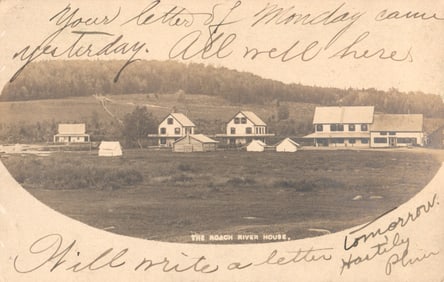 Your letter of Monday came
yesterday. All well here.
THE ROACH RIVER HOUSE.
Will write a letter tomorrow.
Hastily